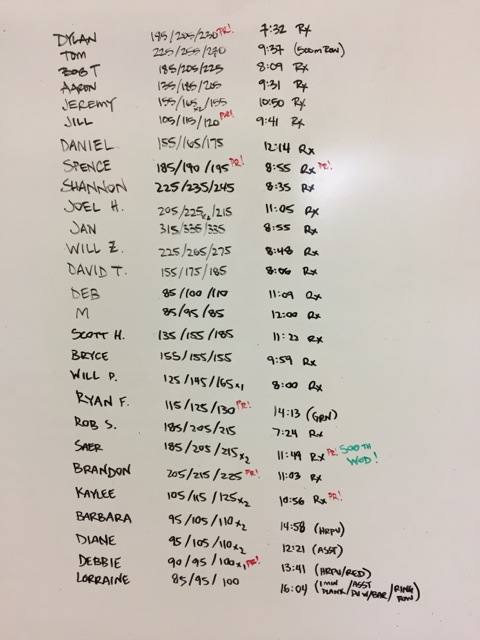 DYLAN 195/205/230 PR! 7:32 Rx
TOM 225/255/270 9:37 (500m ROW)
BOB T 185/205/225 8:09 Rx
AARON 135/185/205 9:31 Rx
JEREMY 155/165x2/155 10:50 Rx
JILL 105/115/120 PR! 9:41 Rx
DANIEL 155/165/175 12:14 Rx
SPENCE 185/190/195 PR! 8:55 Rx PR!
SHANNON 225/235/245 8:35 Rx
JOEL H. 205/225x2/215 11:05 Rx
JAN 315/335/335 8:55 Rx
WILL Z. 225/265/275 8:48 Rx
DAVID T. 155/175/185 8:06 Rx
DEB 85/100/110 11:09 Rx
M 85/95/85 12:00 Rx
SCOTT H. 135/155/185 11:22 Rx
BRYCE 155/155/155 9:59 Rx
WILL P. 125/145/165x1 8:00 Rx
RYAN F. 115/125/130 PR! 14:13 (GRN)
ROB S. 185/205/215 7:24 Rx
SAER 185/205/215x2 11:49 Rx PR! 500TH WOD!
BRANDON 205/215/225 PR! 11:03 Rx
KAYLEE 105/115/125x2 10:56 Rx PR!
BARBARA 95/105/110x2 14:58 (HRPU)
DIANE 95/105/110x2 12:21 (ASST)
DEBBIE 90/95/100x1 PR! 13:41 (HRPU/RED)
LORRAINE 85/95/100 16:04 (1 MIN PLANK/ASST PU W/BAR/RING ROW)